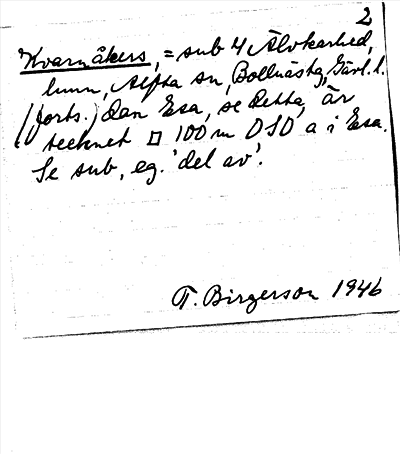 2
Kvarnåkers, = sub 4 Älvkarhed,
hmn, Alfta sn, Bollnäs tg, Gävl. l.
(forts.) Dan Esa, se detta, är
tecknet □ 100 m OSO a i Esa.
Se sub, eg. 'del av'.
T. Birgerson 1946